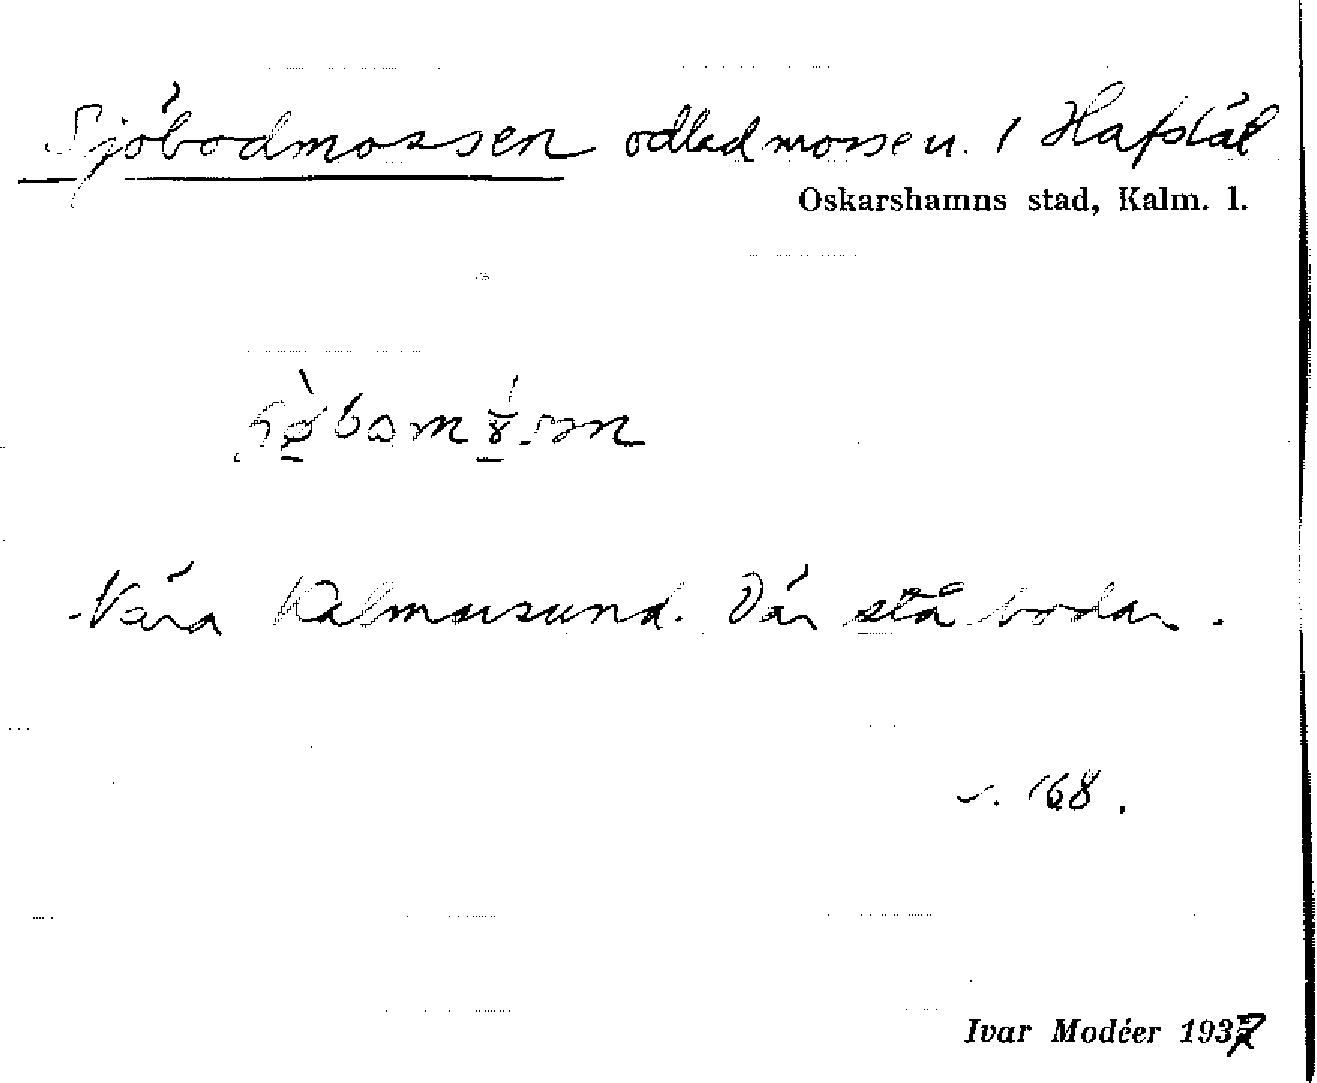 Sjöbodmossen odlad mosse u. 1 Hafslät
Oskarshamns stad, Kalm. l.
Nära Kalmarsund. Där stå bodar.
s. 168.
Ivar Modéer 1937